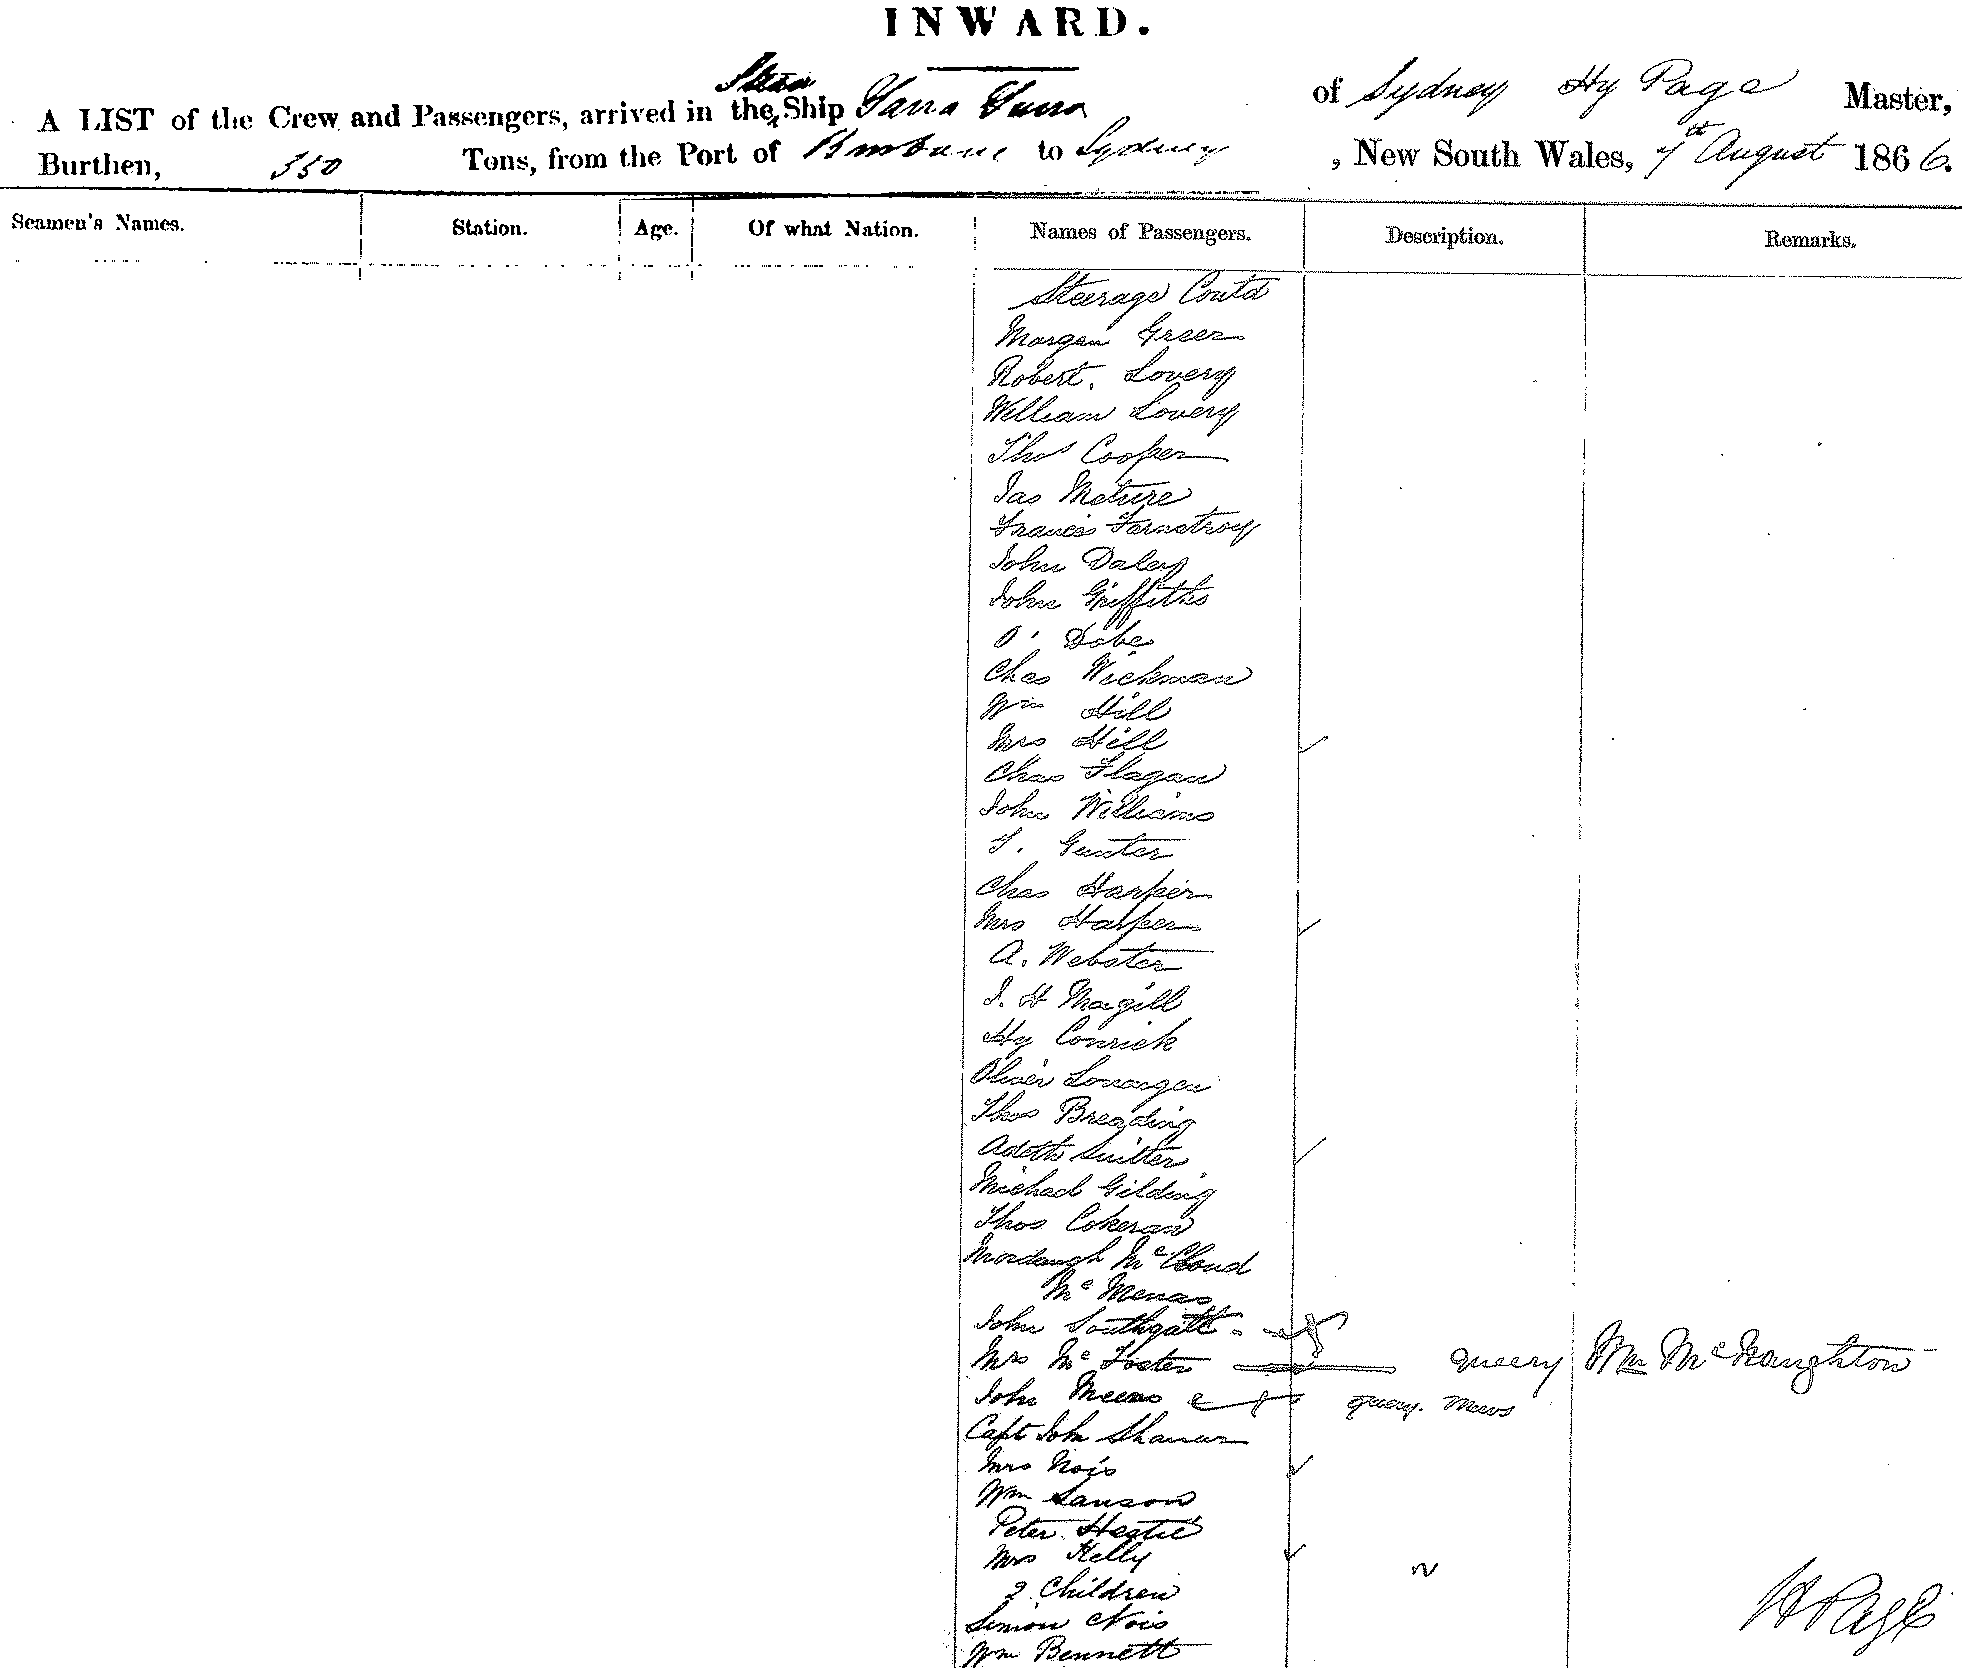 INWARD.
A LIST of the Crew and Passengers, arrived in the Steam Ship Yarra Yarra of Sydney Hy Page Master,
Burthen, 350 Tons, from the Port of Brisbane to Sydney, New South Wales, 7th August 1866.
Seamen's Names. Station. Age. Of what Nation. Names of Passengers. Description. Remarks.
Steerage Contd
Morgan Greer
Robert. Lovery
William Lovery
Thos Cooper
Jas Meture
Francis
John Daley
John Griffiths
O' Dobe
Chas Wickman
Wm Hill
Mrs Hill
Chas Flagan
John Williams
Gunter
Chas Harper
Mrs Harper
A. Webster
J. H Magill
Hy Conrick
Oliver Lonargen
Thos Breading
Suitter
Michael Gilding
Thos Cokeran
Mordaugh McCloud
Mc Menas
John Southgatt
Mrs Mc Foster query Wm McNaughton
John Meens query. Mews
Capt John
Mrs Nois
Wm Sanson
Peter Hastie
Mrs Kelly
2 Children
Simon Nois
Wm Bennett
H Page